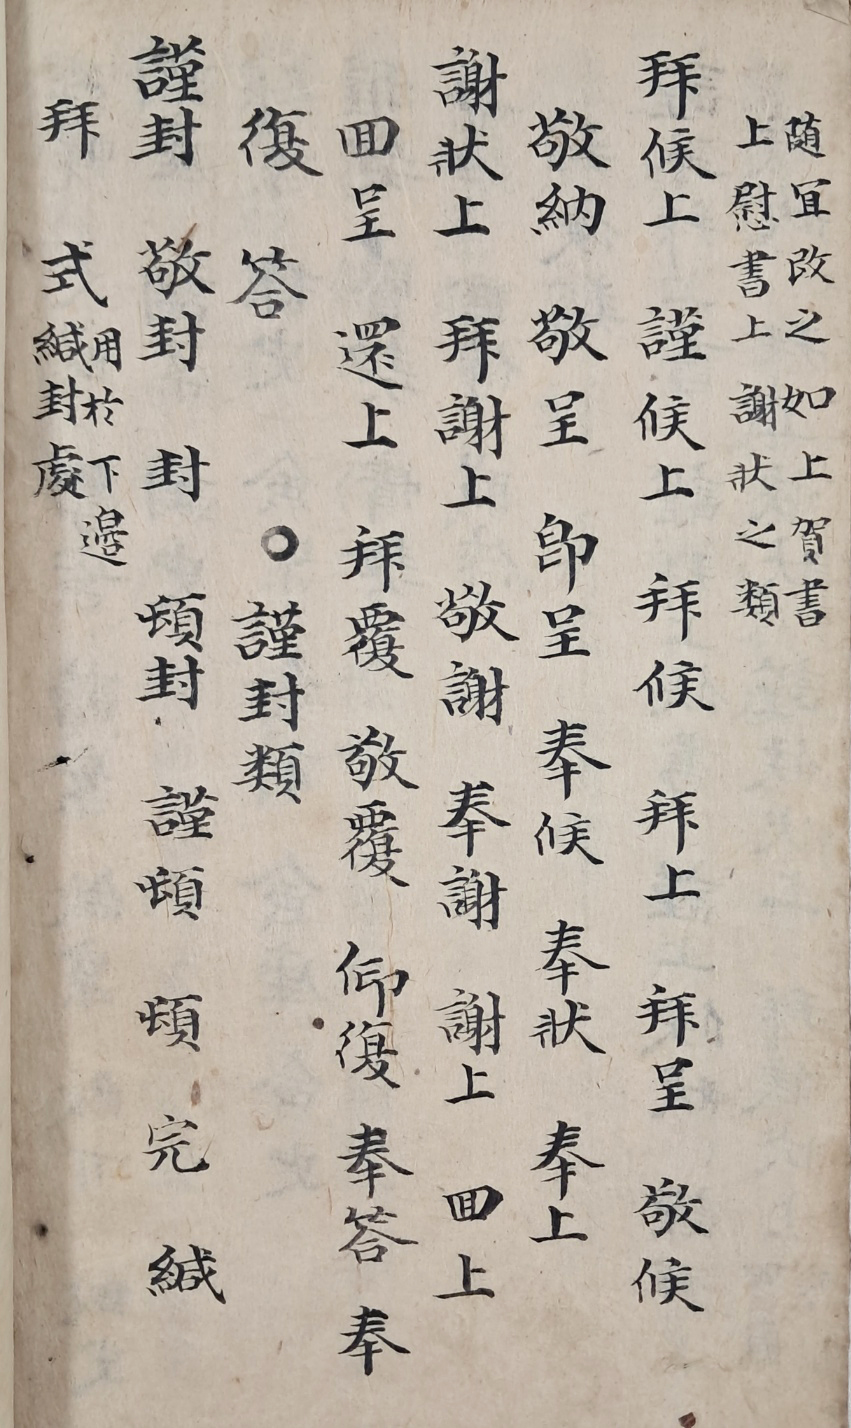 随冝改之如上賀書
上慰書上謝狀之類
拜候上 謹候上 拜候 拜上 拜呈 敬候
敬納 敬呈 卽呈 奉候 奉狀 奉上
謝狀上 拜謝上 敬謝 奉謝 謝上 回上
回呈 還上 拜覆 敬覆 仰復 奉答 奉
復 答 ○謹封類
謹封 敬封 封 頓封 謹頓 頓 完 緘
拜 式
用於下邉
緘封處